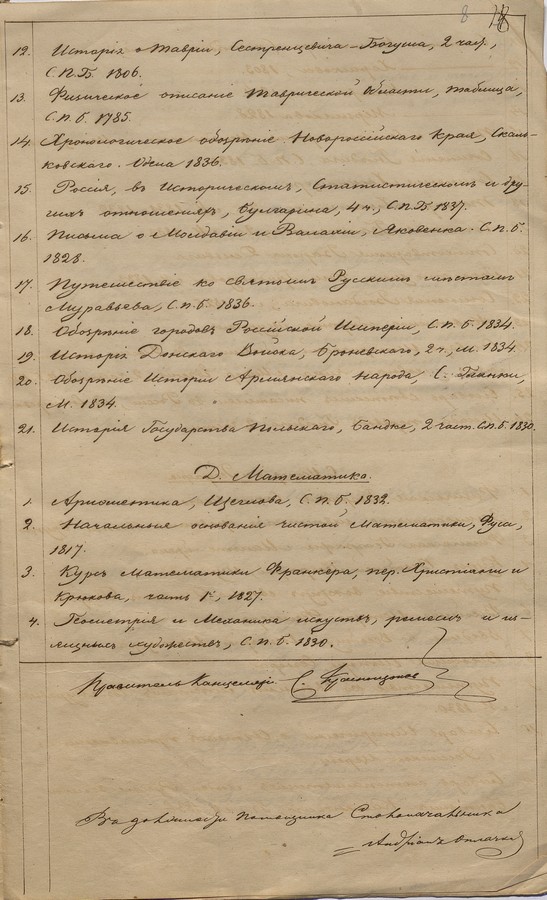 8
12. Исторія о Тавріи, Сестренцевича-Богуша, 2 част.,
С.П.Б. 1806.
13. Физическое описаніе Таврической области, таблица,
С.п.б. 1785.
14. Хронологическое обозрѣніе Новороссійскаго Края, Скаль-
ковскаго. Одесса 1836.
15. Россія, въ Историческомъ, Статистическомъ и дру-
гихъ отношеніяхъ, Булгарина, 4 ч., С.П.Б. 1837.
16. Письма о Молдавіи и Валахіи, Яковенка. С.п.б.
1828.
17. Путешествіе ко святымъ Русскимъ мѣстамъ
Муравьева, С.п.б. 1836.
18. Обозрѣніе городовъ Россійской Имперіи, С.п.б. 1834.
19. Исторія Донскаго Войска, Броневскаго, 2 ч., М. 1834.
20. Обозрѣніе Исторіи Армянскаго народа, С.
М. 1834.
21. Исторія Государства Польскаго, Бандке, 2 част. С.п.б. 1830.
Д. Математика.
1. Ариѳметика, С.п.б. 1832.
2. Начальныя основанія чистой Математики, Фуса,
1817.
3. Курсъ Математики Франкера, пер. Христіани и
Крюкова, часть 1я, 1827.
4. Геометрія и Механика искуствъ, ремеслъ и из-
ящныхъ художествъ, С.п.б. 1830.
Правитель Канцеляріи С.
Помощника Столоначальника
Андріанъ